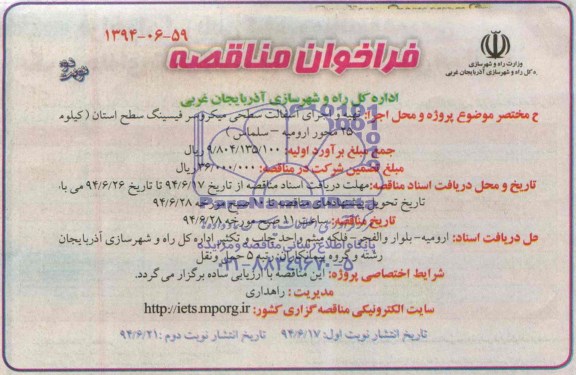 ۱۳۹۴-۰۶-۵۹
فراخوان مناقصه
وزارت راه و شهرسازی
ه کل راه و شهرسازی آذربایجان غربی
نوبت دوم
اداره کل راه و شهرسازی آذربایجان غربی
ح مختصر موضوع پروژه و محل اجرا: تهیه و اجرای آسفالت سطحی میکروسر فیسینگ سطح استان (کیلوم
۲۵ محور ارومیه – سلماس)
جمع مبلغ برآورد اولیه: ۹/۸۰۴/۱۳۵/۱۰۰ ریال
مبلغ تضمین شرکت در مناقصه: ۳۶/۰۰۰/۰۰۰ ریال
تاریخ و محل دریافت اسناد مناقصه: مهلت دریافت اسناد مناقصه از تاریخ ۹۴/۶/۱۷ تا تاریخ ۹۴/۶/۲۶ می با.
تاریخ تحویل پیشنهادهای مناقصه تا صبح مورخه ۹۴/۶/۲۸
تاریخ مناقصه: ساعت ۱۱ صبح مورخه ۹۴/۶/۲۸
حل دریافت اسناد: ارومیه- بلوار والفجر- فلکه مشو واحد چاپ و تکثیر اداره کل راه و شهرسازی آذربایجان
رشته و گروه پیمانکاران: رتبه ۵ حمل ونقل
شرایط اختصاصی پروژه: این مناقصه با ارزیابی ساده برگزار می گردد.
مدیریت: راهداری
سایت الکترونیکی مناقصه گزاری کشور: http://iets.mporg.ir
تاریخ انتشار نوبت اول: ۹۴/۶/۱۷ تاریخ انتشار نوبت دوم: ۹۴/۶/۲۱
پایگاه اطلاع رسانی مناقصه و مزایده
۰۲۱-۸۸۳۴۹۶۷۰-۵